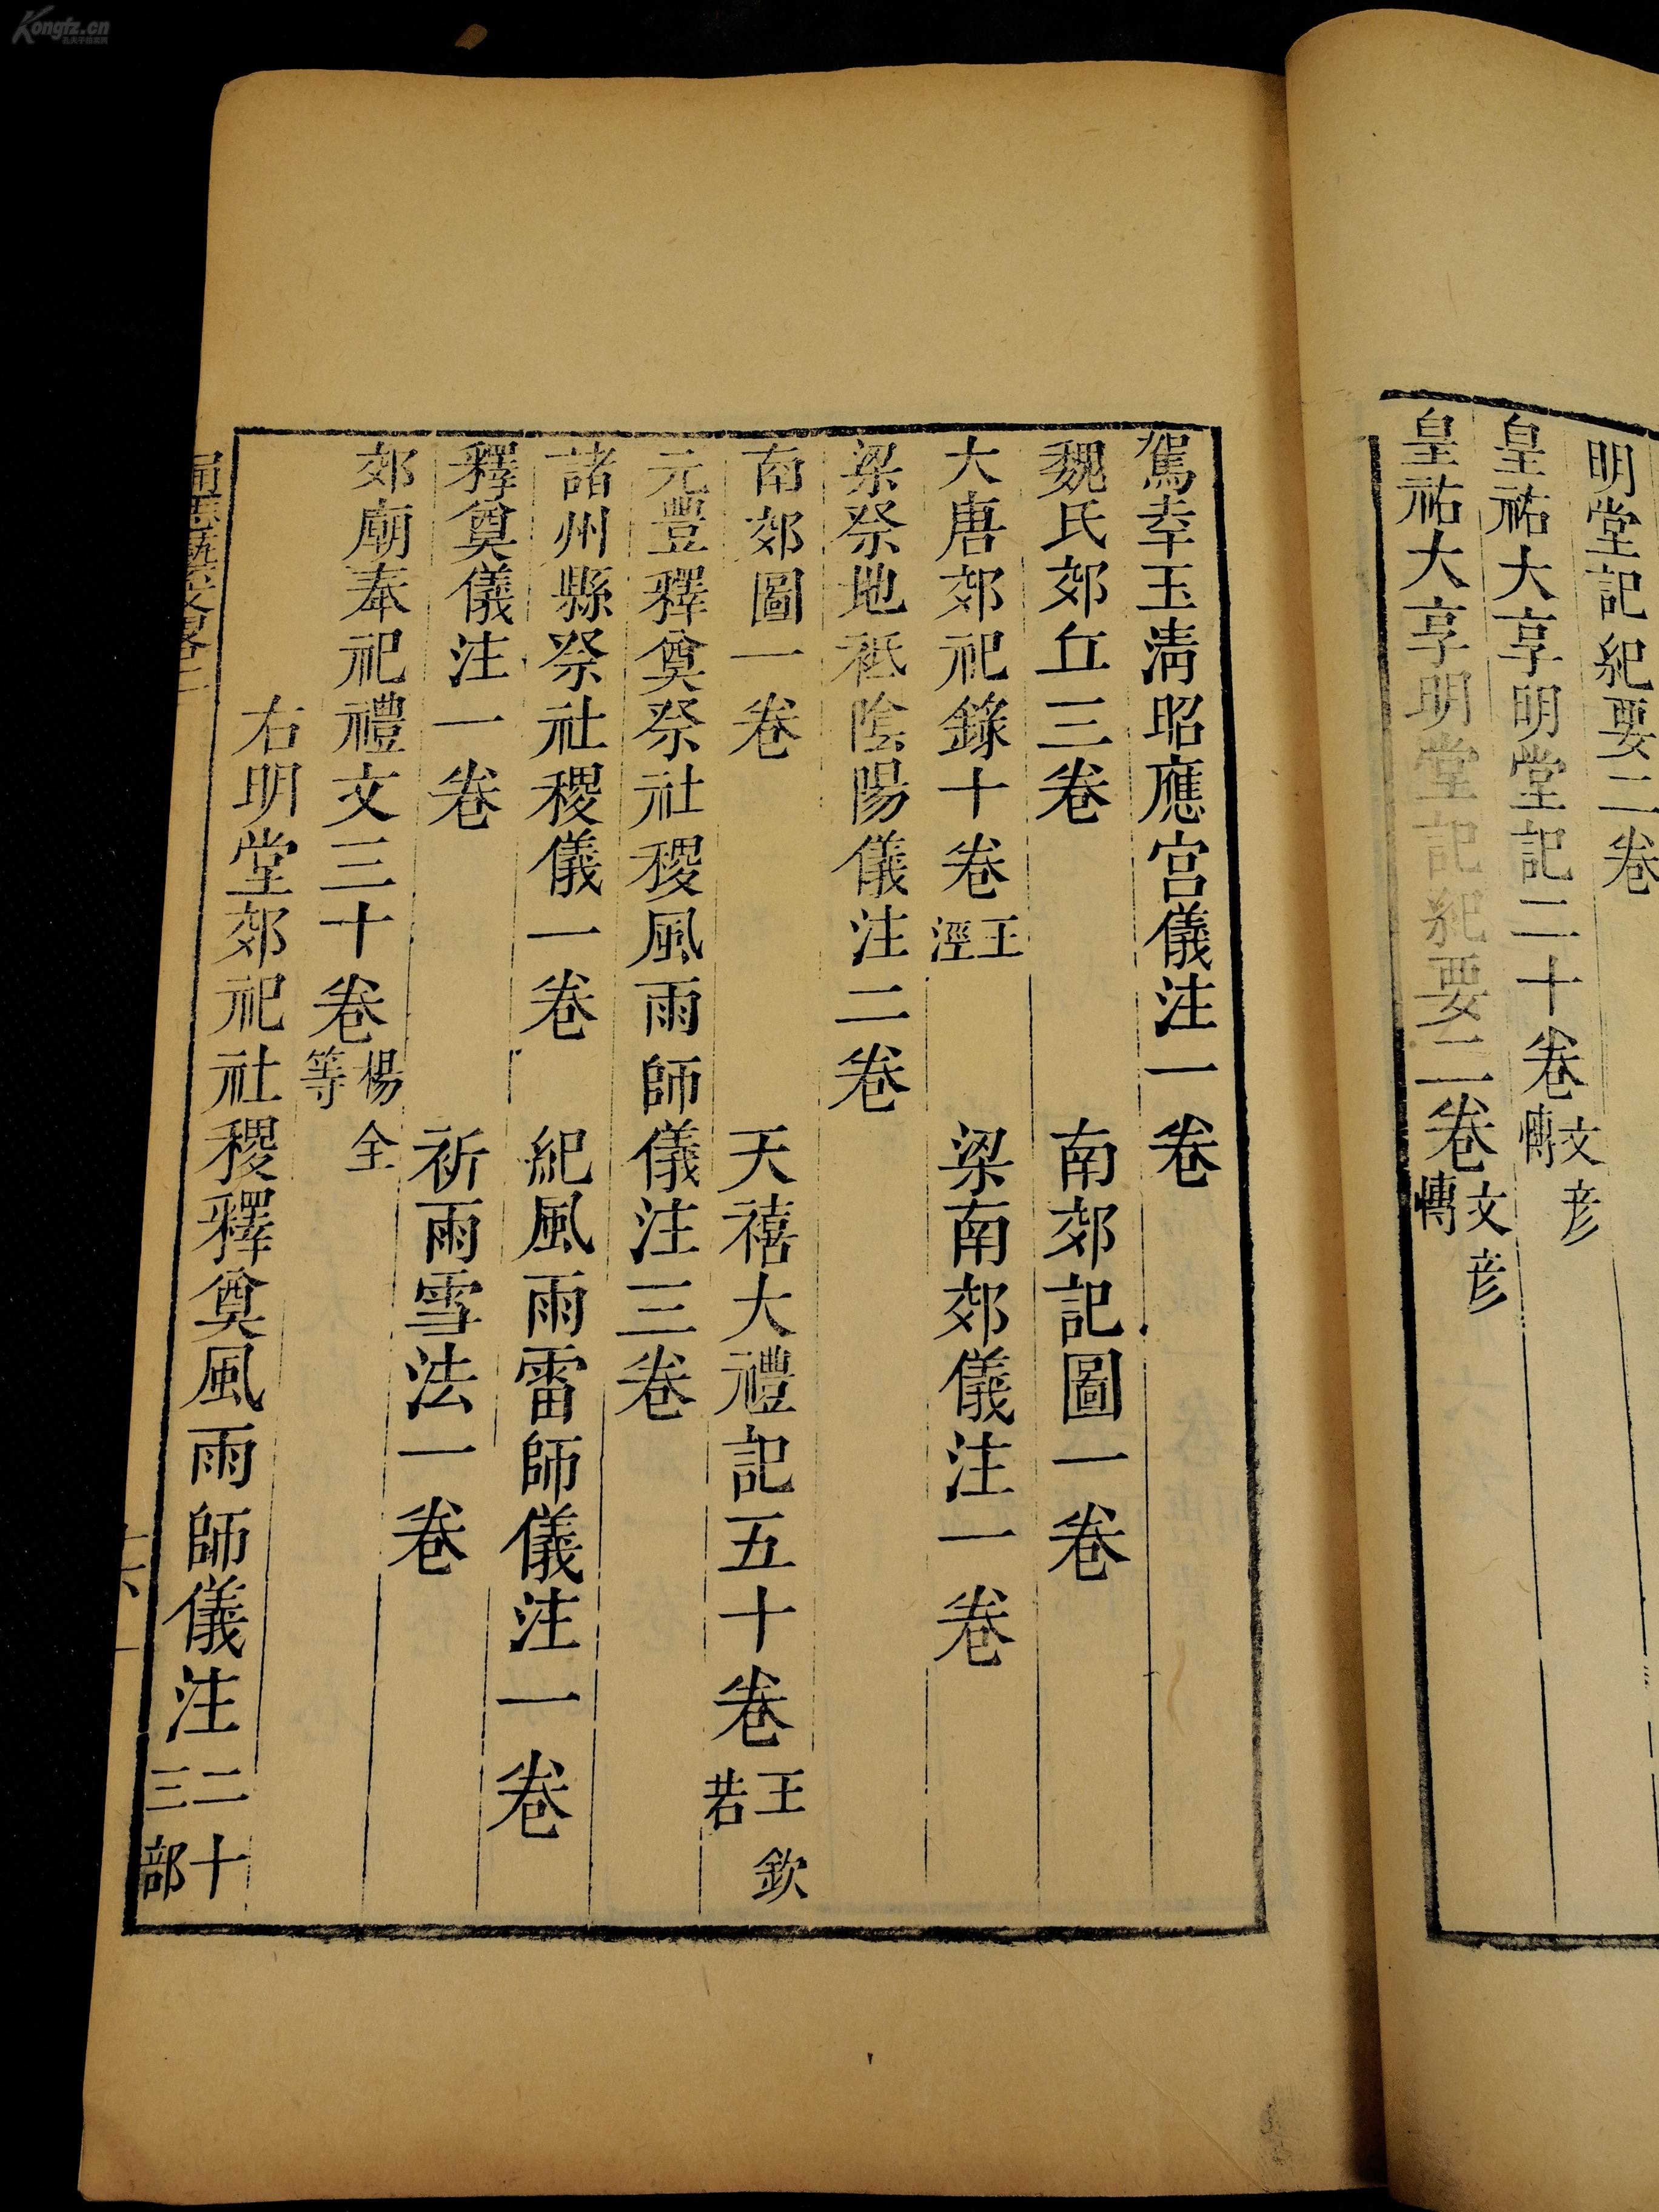 Kongfz.cn
明堂記紀要二卷
皇祐大享明堂記二十卷文彥慱
皇祐大享明堂記紀要二卷文彥慱
駕幸玉清昭應宮儀注一卷
魏氏郊丘三卷 南郊記圖一卷
大唐郊祀錄十卷王涇 梁南郊儀注一卷
梁祭地祗陰陽儀注二卷
南郊圖一卷 天禧大禮記五十卷王欽若
元豐釋奠祭社稷風雨師儀注三卷
諸州縣祭社稷儀一卷 祀風雨雷師儀注一卷
釋奠儀注一卷 祈雨雪法一卷
郊廟奉祀禮文三十卷楊全等
右明堂郊祀社稷釋奠風雨師儀注二十三部